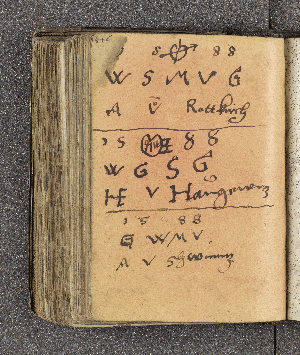 8 8 8
W S M V G
A V Rottkirch
1 5 8 8
W G S G
HE V Haugewitz
1 5 8 8
G W M V.
A V Schweinitz